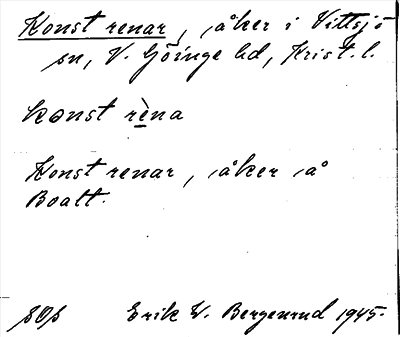 Konst renar, åker i Vittsjö
sn, V. Göinge hd, Krist. l.
konst rèna
Konst renar, åker å
Boalt.
SOS
Erik W. Bergenrud 1945.